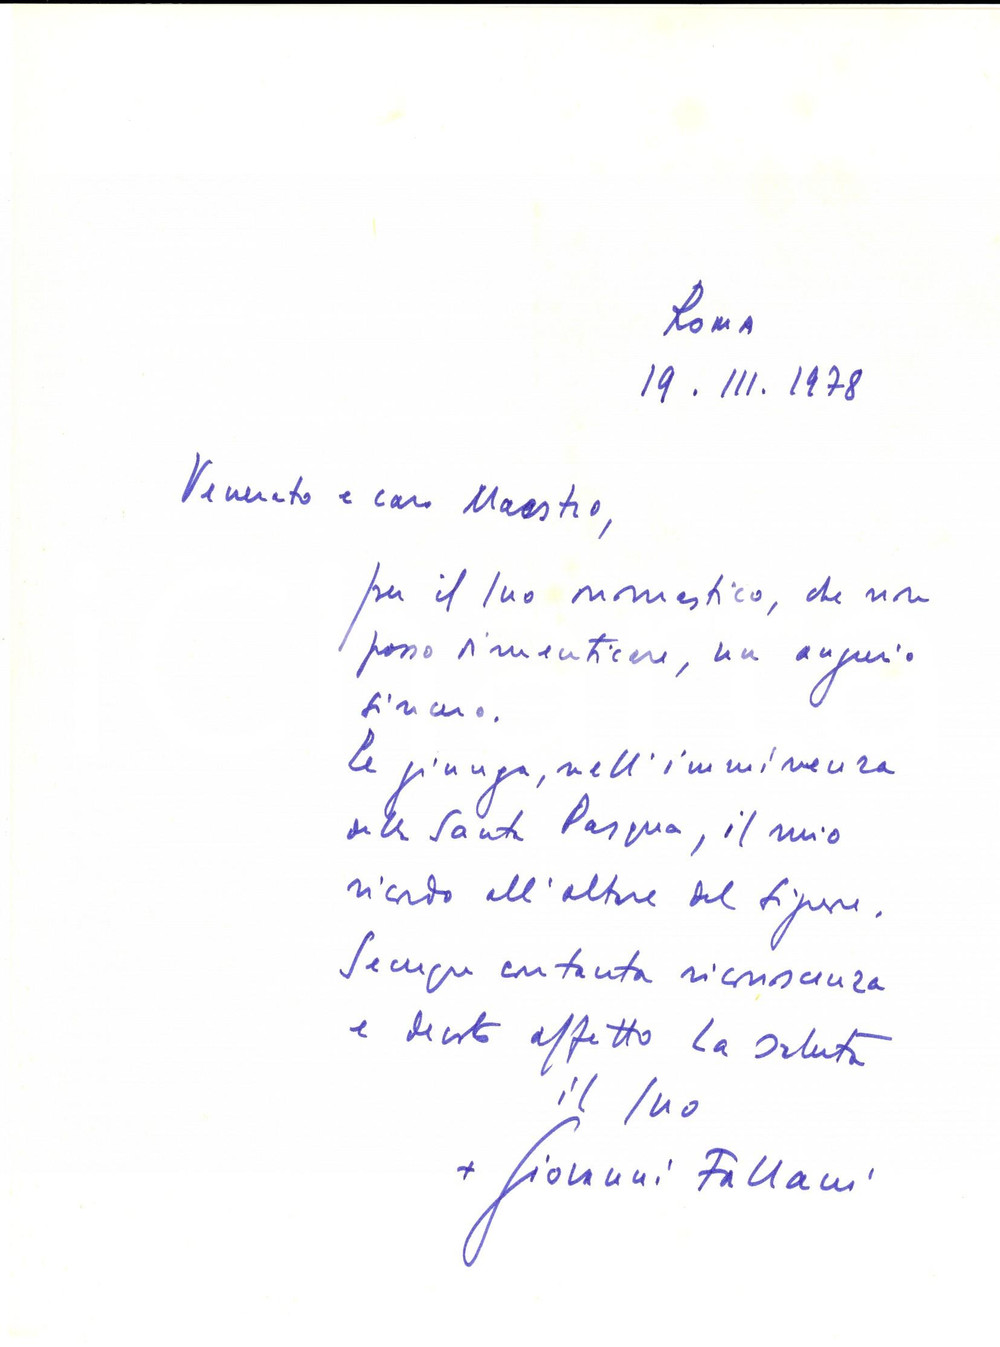 Roma
19. III. 1978
Venerato e caro Maestro,
per il Suo onomastico, che non
posso dimenticare, un augurio
sincero.
Le giunga, nell'imminenza
della Santa Pasqua, il mio
ricordo all'altare del Signore.
Sempre con tanta riconoscenza
e devoto affetto La saluta
il Suo
+ Giovanni Fallani